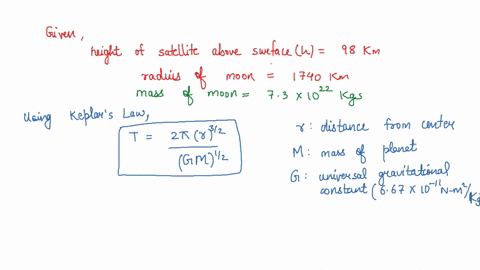 Given,
height of satellite above surface (h) = 98 Km
radius of moon = 1740 Km
mass of moon = 7.3 × 10²² Kgs
Using Keplar's Law,
T = 2π (r)^3/2 / (GM)^1/2
r : distance from center
M : mass of planet
G : universal gravitational
constant (6.67 × 10⁻¹¹ N-m²/Kg